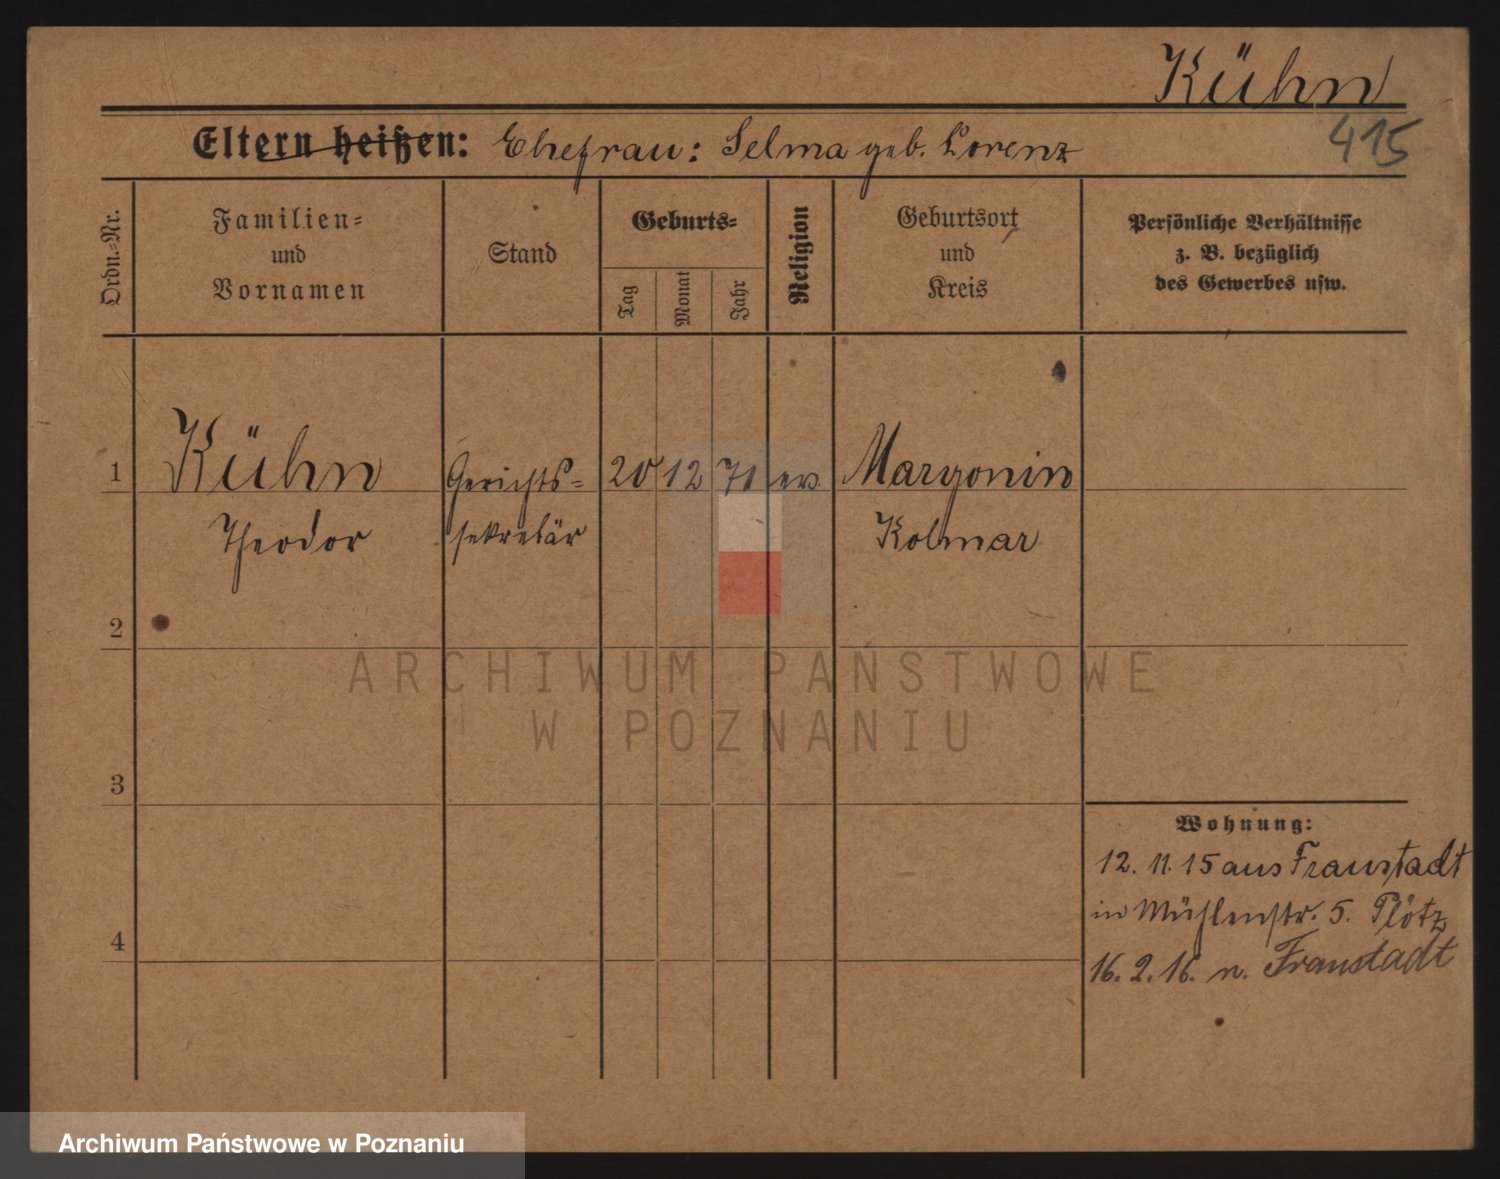 Kühn
415
Eltern heißen: Ehefrau: Selma geb. Lorenz
Ordn.=Nr.
Familien=
und
Vornamen
Stand
Geburts=
Tag
Monat
Jahr
Religion
Geburtsort
und
Kreis
Persönliche Verhältnisse
z. B. bezüglich
des Gewerbes usw.
1 Kühn Gerichts= 20 12 71 ev. Margonin
Theodor sekretär Kolmar
2
ARCHIWUM PAŃSTWOWE
W POZNANIU
3
Wohnung:
12. 11. 15 aus Fraustadt
in Mühlenstr. 5. Plötz
4
16. 2. 16. n. Fraustadt
Archiwum Państwowe w Poznaniu